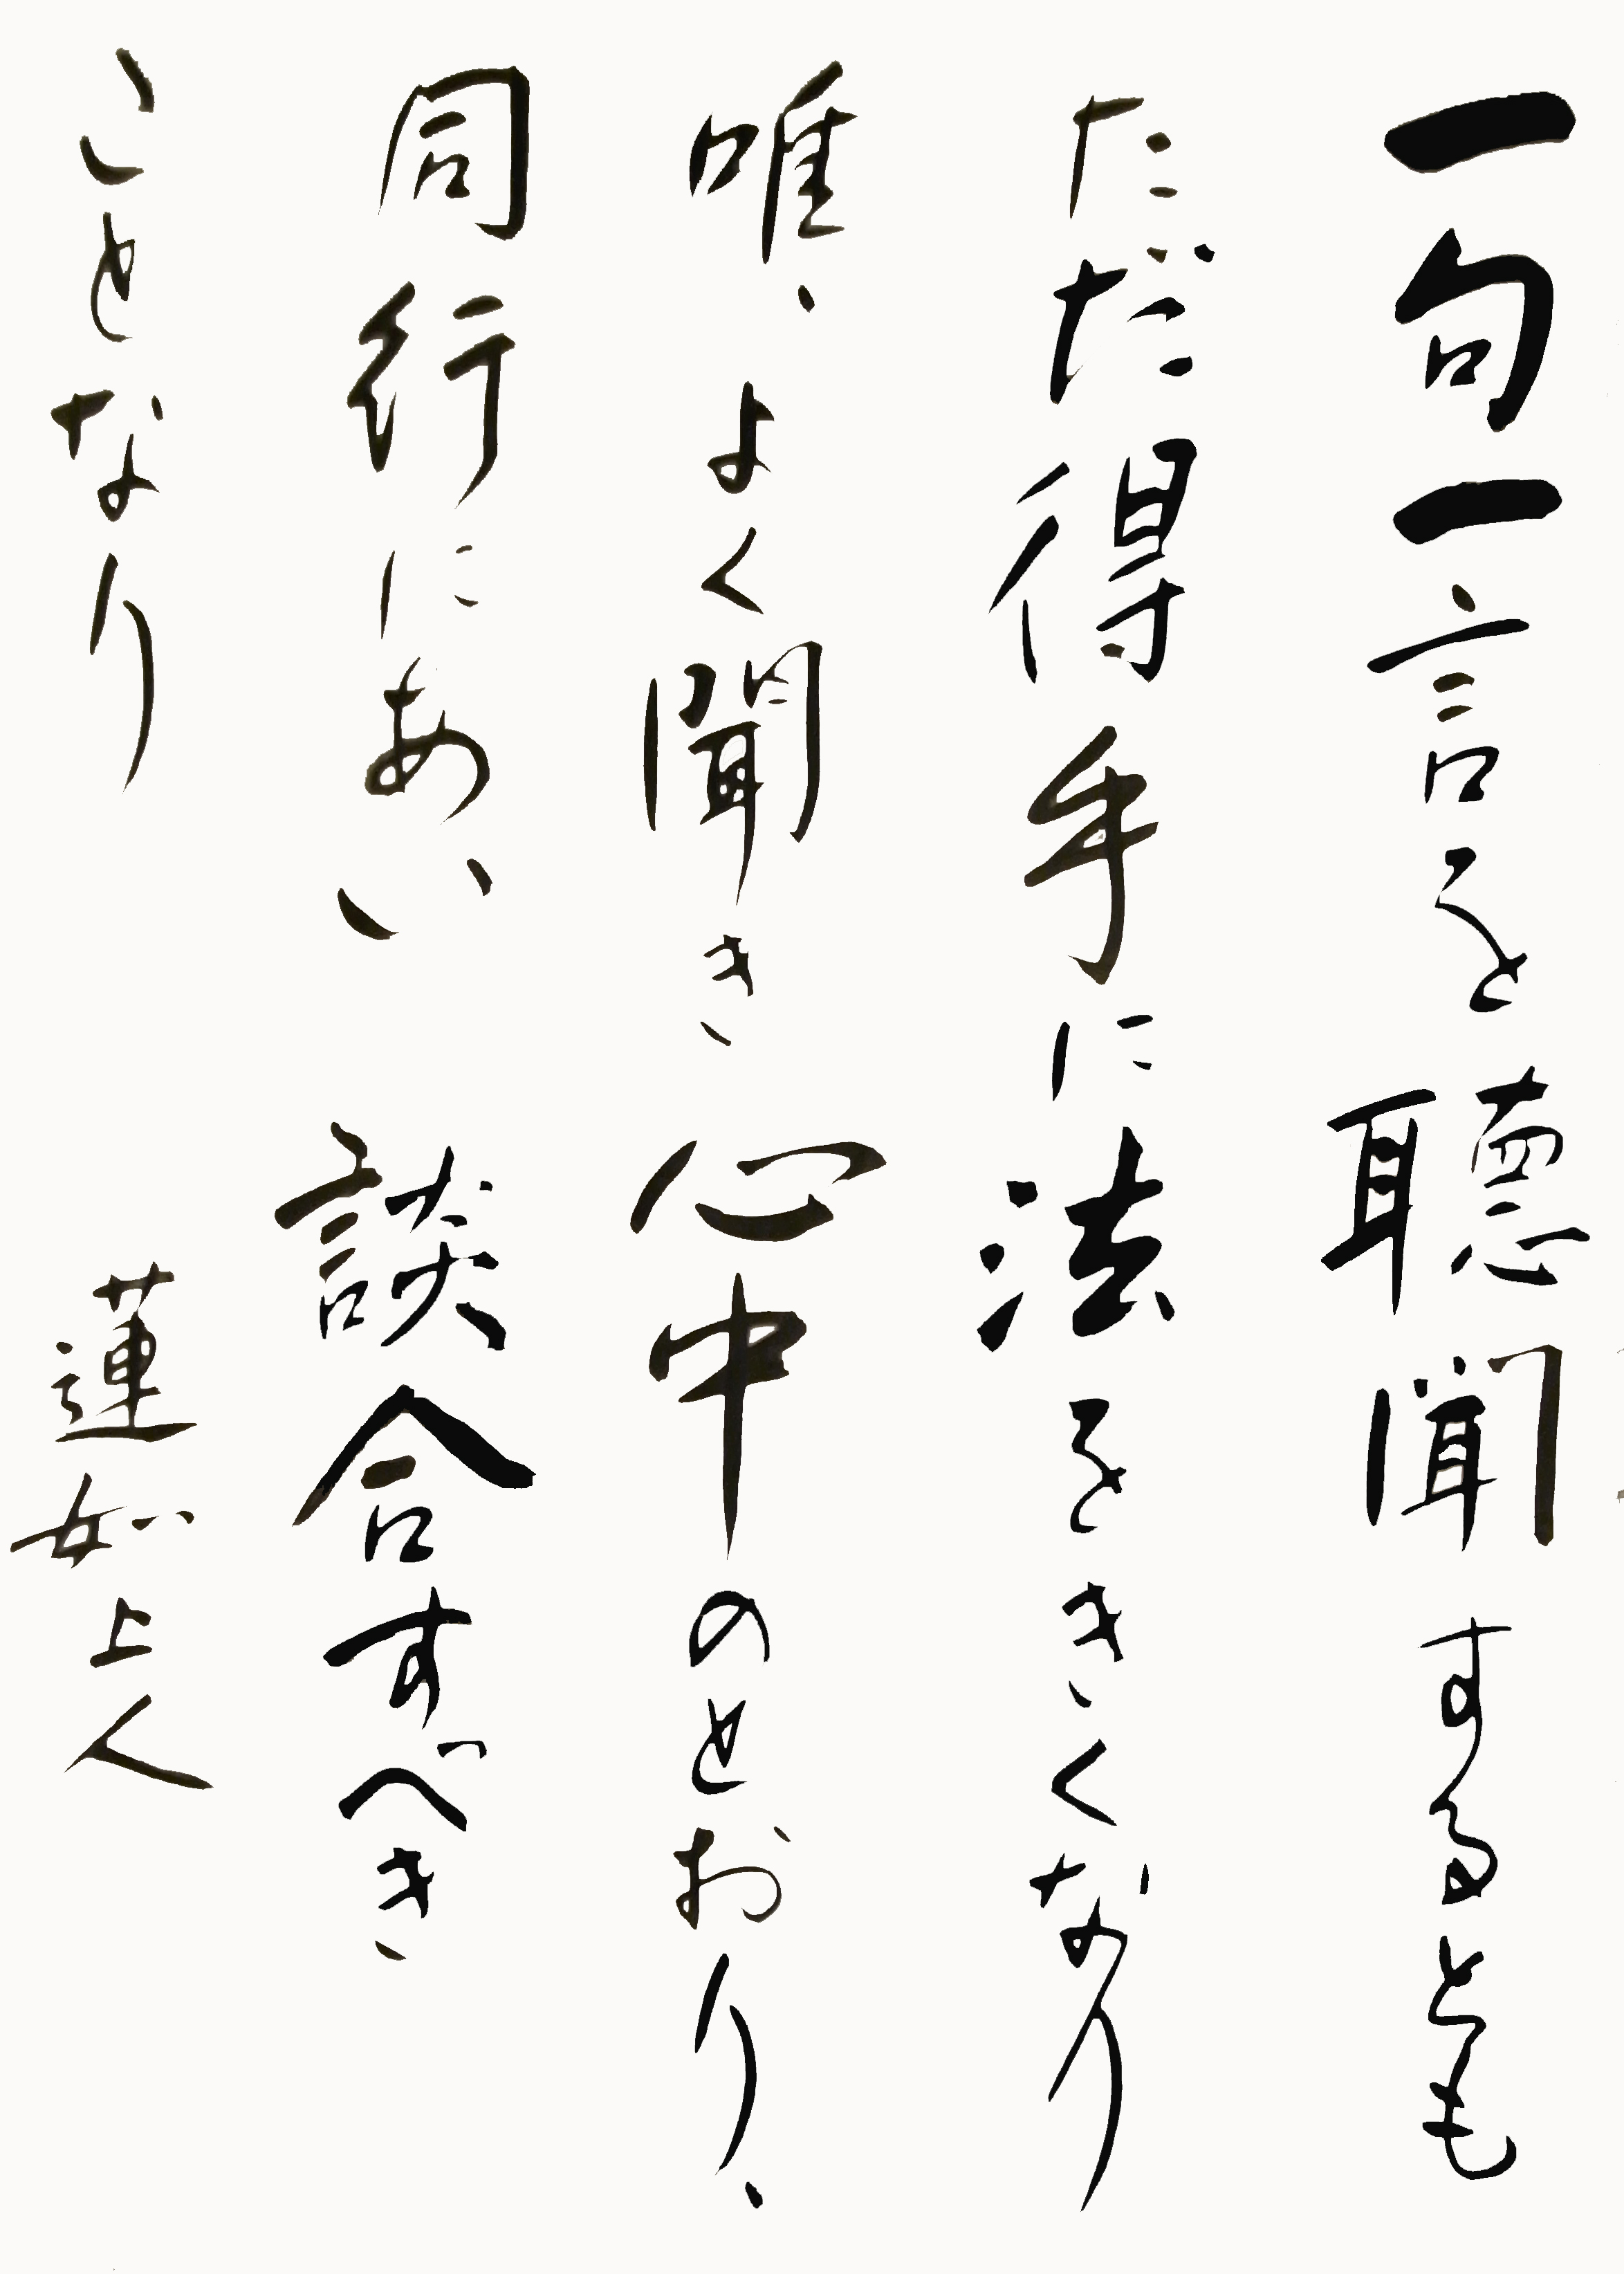 一句一言を聴聞するとも
ただ得手に法をきくなり
唯、よく聞き心中のとおり、
同行にあい談合すべき
ことなり
蓮如上人